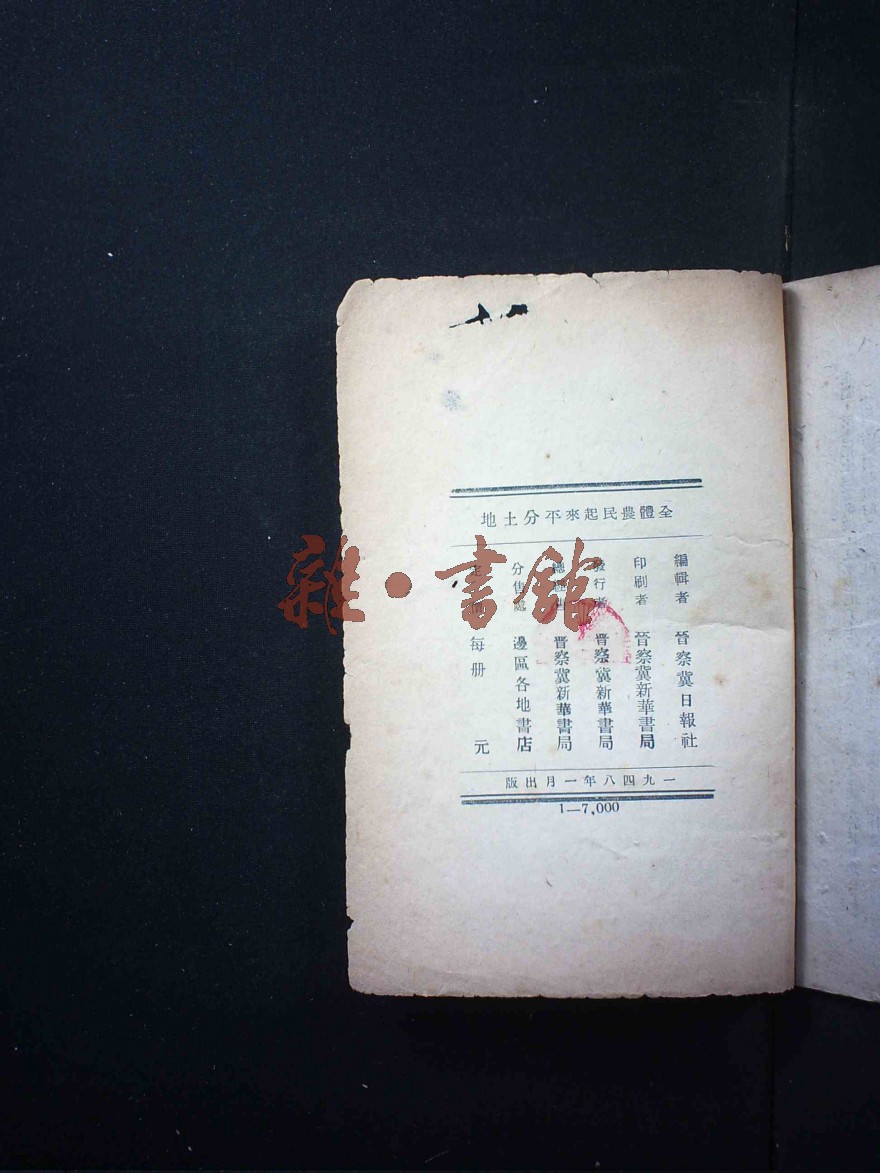 全體農民起來平分土地
編輯者 晉察冀日報社
印刷者 晉察冀新華書局
發行者 晉察冀新華書局
晋察冀新華書局
分售處 邊區各地書店
定 每册 元
一九四八年一月出版
1—7,000
雜·書館